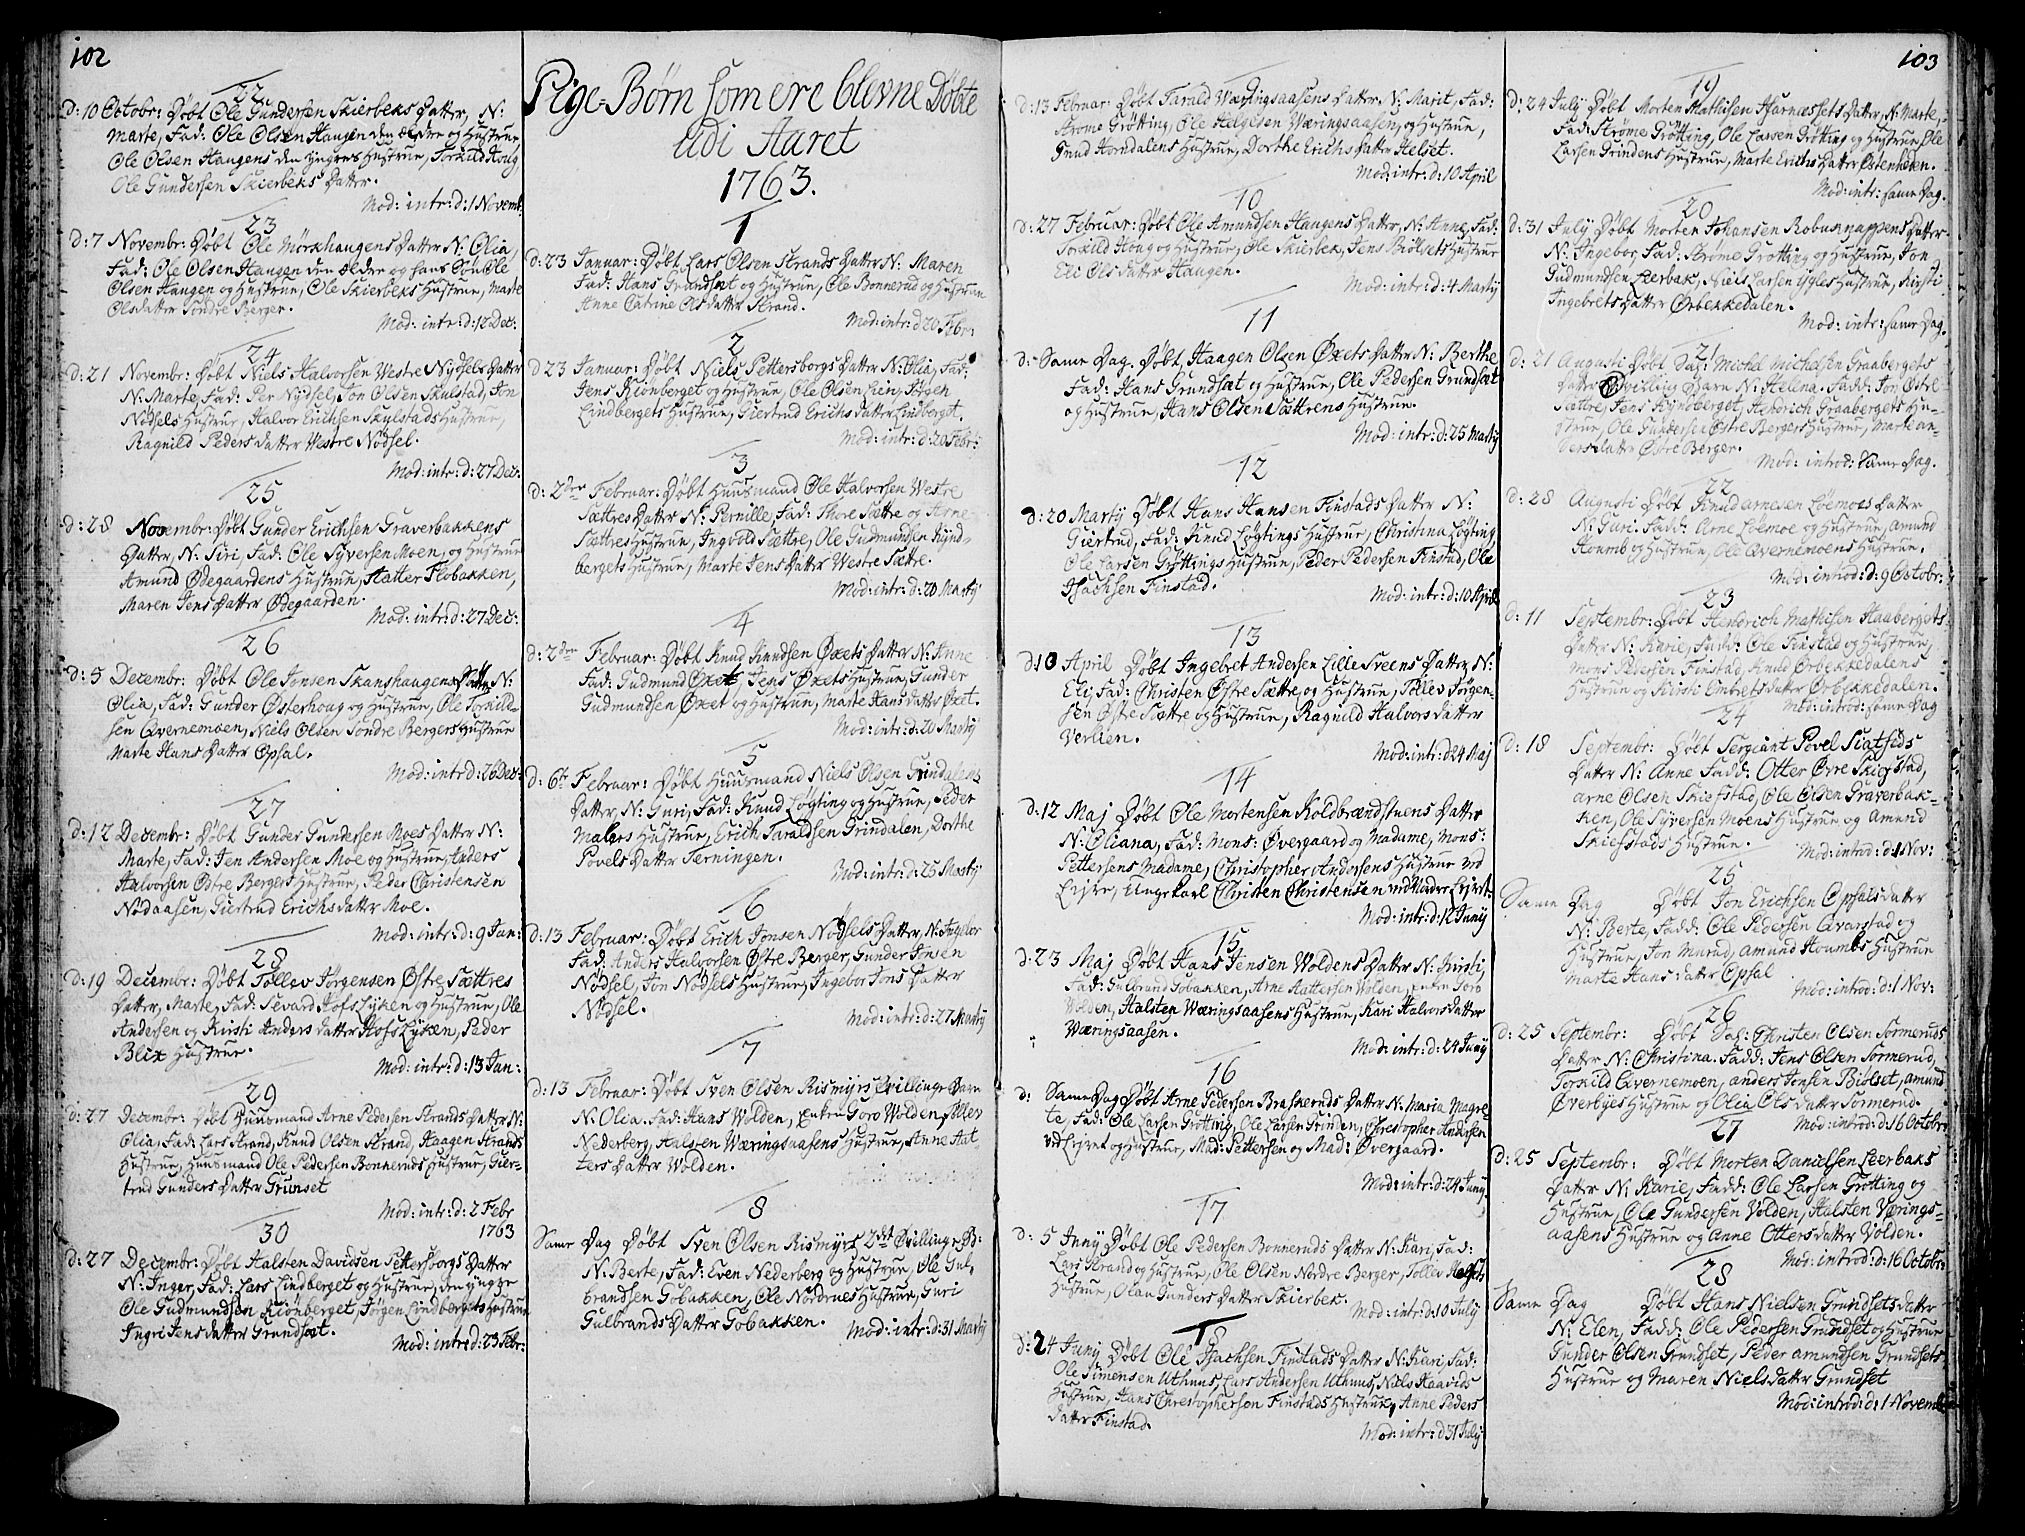 102
22
d: 10 Octobr: Døbt Ole Gundersen Skierbeks Datter, N:
Marte, Fad: Ole Olsen Haugen den ældre og Hustrue,
Ole Olsen Haugens den yngres Hustrue, Torkild Houg,
Ole Gundersen Skierbeks Datter.
Mod: intr: d: 1 Novemb.
23
d: 7 Novembr: Døbt Ole Mörkhaugens Datter N: Olia,
Fad: Ole Olsen Haugen den ældre og hans Søn Ole
Olsen Haugen og Hustrue, Ole Skierbeks Hustrue, Marte
Olsdatter Søndre Berger.
Mod: intr: d: 12 Dec:
24
d: 21 Novembr: Døbt Niels Halvorsen Westre Nydsels Datter
N: Marte, Fad: Per Nydsel, Jon Olsen Skulstad, Jon
Nødsels Hustrue, Halvor Erichsen Skulstads Hustrue,
Ragnild Peders Datter Westre Nødsel.
Mod: intr: d: 27 Dec:
25
d: 28 Novembr: Døbt Gunder Erichsen Graverbakkens
Datter, N: Siri, Fad: Ole Syversen Moen, og Hustrue
Amund Ødegaardens Hustrue, Hatter Flobakken,
Maren Jens Datter Ødegaarden.
Mod: intr: d: 27 Dec:
26
d: 5 Decembr: Døbt Ole Jonsen Skanshaugens Datter N:
Olia, Fad: Gunder Østerhoug og Hustrue, Ole Torkild-
sen Qvernemoen, Niels Olsen Søndre Bergers Hustrue
Marte Hans Datter Opsal.
Mod: intr d: 26 Dec:
27
d: 12 Decembr: Døbt Gunder Gundersen Moes Datter N:
Marte, Fad: Jen Andersen Moe og Hustrue, Anders
Halvorsen Østre Bergers Hustrue, Peder Christensen
Nødaasen, Giertrud Erichsdatter Moe.
Mod: intr: d: 9 Jan:
28
d: 19 Decembr: Døbt Tollev Jørgensen Østre Sættres
Datter, Marte, Fad: Sevard Hofs Lyken og Hustrue, Ole
Andersen og Kirsti Anders datter Hofs Lyken, Peder
Blix Hustrue.
Mod: intr: d: 13 Jan:
29
d: 27 Decembr: Døbt Huusmand Arne Pedersen Strands Datter N:
Olia, Fad: Lars Strand, Knud Olsen Strand, Haagen Strands
Hustrue, Huusmand Ole Pedersen Bonneruds Hustrue, Gier-
trud Gunders Datter Grunset
Mod: intr: d: 2 Febr
1763
30
d: 27 Decembr: Døbt Halsten Davidsen Pettersborgs Datter
N: Inger, Fad: Lars Lindberget og Hustrue, den yngre
Ole Gudmundsen Kiønberget, Jørgen Lindbergets Hustrue
Ingri Jensdatter Grundsæt.
Mod: intr: d: 23 Febr:
Pige-Børn som ere blevne Døbte
udi Aaret
1763.
1
d: 23 Januar: Døbt Lars Olsen Strands Datter N: Maren
Fad: Hans Grundsæt og Hustrue, Ole Bonnerud og Hustrue
Anne Catrine Olsdatter Strand.
Mod: intr: d 20 Febr:
2
d 23 Januar: Døbt Niels Pettersborgs Datter N: Olia, Fad:
Jens Kiønberget og Hustrue, Ole Olsen Lien, Jørgen
Lindbergets Hustrue, Giertrud Erichs datter Lindberget,
Mod: intr: d: 20 Febr:
3
d: 2den Februar: Døbt Huusmand Ole Halvorsen Westre
Sættres Datter N: Pernille, Fad: Thore Sættre og Arne
Sættres Hustrue, Ingvold Sættre, Ole Gudmundsen Kynd-
bergets Hustrue, Marte Jens Datter Westre Sættre.
Mod: intr: d: 20 Marty
4
d: 2den Februar: Døbt Knud Knudsen Øxets Datter N: Anne
Fad: Gudmund Øxet, Jens Øxets Hustrue, Gunder
Gudmundsen Øxet og Hustrue, Marte Hans datter Øxet.
Mod: intr: d: 20 Marty
5
d: 6te Februar: Døbt Huusmand Niels Olsen Grindalens
Datter, N: Guri, Fad: Knud Løgting og Hustrue, Peder
Malers Hustrue, Erich Tavaldsen Grindalen, Dorthe
Povels Datter Terningen.
Mod: intr: d: 25 Marty
6
d: 13 Februar: Døbt Erich Jonsen Nødsels Datter, N: Ingebor
Fad: Anders Halvorsen Østre Berger, Gunder Jonsen
Nødsel, Jon Nødsels Hustrue, Ingebor Jons Datter
Nødsel.
Mod: intr: d: 27 Marty
7
d: 13 Februar: Døbt Sven Olsen Rismyrs Tvillinge Barn
N: Olia, Fad: Hans Wolden, Entru Goro Wolden, Tollev
Nederberg, Halsten Wæringsaasens Hustrue, Anne Hat-
ters Datter Wolden.
8
Same Dag Døbt Sven Olsen Rismyrs 2det Tvillinge B:
N: Berte, Fad: Even Nederberg og Hustrue, Ole Gul-
brandsen Gobakken, Ole Nordrues Hustrue, Guri
Gulbrands Datter Gobakken.
Mod: intr: d: 31 Marty
d: 13 Februar: Døbt Tarald Wæringsaasens Datter N: Marit, Fad:
Strøme Grötting, Ole Helgesen Wæringsaasen, og Hustrue,
Gnud Horndalens Hustrue, Dorthe Erichs Datter Helset.
Mod: intr: d: 10 April
10
d: 27 Februar: Døbt Ole Amundsen Haugens Datter, N: Anne, Fad:
Torkild Houg og Hustrue, Ole Skierbek, Jens Biølsets Hustrue
Eli Ols datter Haugen.
Mod: intr: d: 4 Marty
11
d: Same Dag. Døbt, Haagen Olsen Øxets Datter N: Berthe
Fad: Hans Grundsæt og Hustrue, Ole Pedersen Grundsæt
og Hustrue, Hans Olsen Sættrens Hustrue.
Mod: intr: d: 25 Marty
12
d: 20 Marty Døbt Hans Hansen Finstads Datter N:
Giertrud, Fad: Knud Løgtings Hustrue, Christina Løgting
Ole Larsen Grøttings Hustrue, Peder Pedersen Finstad, Ole
Isachsen Finstad.
Mod: intr: d: 10 April
13
d 10 April Døbt Ingebret Andersen Lille Sveens Datter, N:
Eli, Fad: Christen Østre Sættre, og Hustrue, Tollev Jørgen-
sen Østre Sættre og Hustrue, Ragnild Halvors datter
Verlien.
Mod: intr: d 24 Maj
14
d: 12 Maj Døbt Ole Mortensen Koldbrændstuens Datter
N: Oliana, Fad: Mons: Øvergaard og Madame, Mons:
Pettersens Madame, Christopher Andersens Hustrue ved
Lejret, Ungekarl Christen Christensen ved Lejret.
Mod: intr: d: 12 Juny
15
d: 23 Maj Døbt Hans Jensen Woldens Datter N: Kirsti,
Fad: Gulbrand Gobakken, Arne Hattersen Wolden, Entru Goro
Wolden, Halsten Wæringsaasens Hustrue, Kari Halvors datter
Wæringsaasen.
Mod: intr: d: 24 Juny
16
d: Same Dag Døbt Arne Pedersen Braskeruds Datter N: Maria Magre-
te, Fad: Ole Larsen Grötting, Ole Larsen Grinden, Christopher Andersen
ved Lejret og Hustrue, Mad: Pettersen og Mad: Øvergaard.
Mod: intr: d: 24 Juny
17
d: 5 Juny Døbt Ole Pedersen Bonneruds Datter N: Kari, Fad:
Lars Strand og Hustrue, Ole Olsen Nordre Berger, Tollev Helsets
Hustrue, Olau Gunders Datter Skierbek.
Mod: intr: d: 10 July
18
d: 24 Juny Døbt Ole Isachsen Finstads Datter N: Kari, Fad:
Ole Simensen Uthuus, Lars Andersen Uthuus, Niels Haavids
Hustrue, Hans Christophersen Finstads Hustrue, Anne Peders
datter Finstad.
Mod: intr: d 31 July
103
19
d: 24 July Døbt Morten Mathisen Hiarnæssets Datter, N: Marte,
Fad: Strøme Grötting, Ole Larsen Grötting og Hustrue, Ole
Larsen Grindens Hustrue, Marte Erichs Datter Østenheden.
Mod: intr: same Dag.
20
d: 31 July Døbt Morten Johansen Robusmappens Datter
N: Ingebor, Fad: Strøme Grötting og Hustrue, Jon
Gudmundsen Leerbak, Niels Larsen Ygles Hustrue, Kirsti
Ingebrets Datter Ørbekkedalen.
Mod: intr: same Dag.
21
d: 21 Augusti Døbt Sal: Michel Michelsen Graabergets
Datter Tvilling Barn N: Helena. Fadd: Jon Østre
Sættre, Jens Kyndberget, Hendrich Graabergets Hu-
strue, Ole Gundersen Østre Bergers Hustrue, Marte An-
dersdatter Østre Berger.
Mod: introd: Same Dag.
22
d: 28 Augusti Døbt Knud Arnesen Löemoes Datter
N: Guri. Fadd: Arne Loemoe og Hustrue, Amund
Houmb og Hustrue, Ole Qvernemoens Hustrue.
Mod: introd: d: 9 Octobr:
23
d: 11 Septembr: Døbt Hendrich Mathisen Haabergets
Datter N: Karie, Fadd: Ole Finstad og Hustrue,
Mons Pedersen Finstad, Knud Ørbekkedalens
Hustrue og Kirsti Embrets datter Ørbekkedalen.
Mod: introd: same Dag
24
d: 18 Septembr: Døbt Sergiant Povel Siatfids
Datter N: Anne Fadd: Otter Øvre Skiefstad,
Arne Olsen Skiefstad, Ole Olsen Graverbak-
ken, Ole Syversen Moens Hustrue og Amund
Skiefstads Hustrue.
Mod: introd: d: 1 Nov:
25
Same Dag Døbt Jon Erichsen Opsals datter
N: Berte, Fadd: Ole Pedersen Qvarstad og
Hustrue, Jon Murud, Amund Houmbs Hustrue
Marte Hans datter Opsal
Mod: introd: d: 1 Nov:
26
d: 25 Septembr: Døbt Sal: Christen Olsen Sørmeruds
Datter N: Christina. Fadd: Jens Olsen Sørmerud,
Torkild Qvernemoen, Anders Jonsen Biølset, Amund
Øverbyes Hustrue og Olia Ols datter Sørmerud.
Mod: introd: d: 16 Octobr
27
d: 25 Septembr: Døbt Morten Danielsen Leerbaks
Datter N: Karie, Fadd: Ole Larsen Grötting og
Hustrue, Ole Gundersen Volden, Halsten Værings-
aasens Hustrue og Anne Otters datter Volden.
Mod: introd: d: 16 Octobr:
28
Same Dag Døbt Hans Nielsen Grundsets datter
N: Elen, Fadd: Ole Pedersen Grundset og Hustrue
Gunder Olsen Grundset, Peder Amundsen Grundsets
Hustrue og Maren Niels datter Grundset
Mod: introd: d: 1 Novemb: